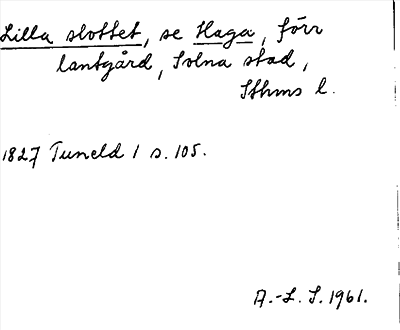 Lilla slottet, se Haga, förr
lantgård, Solna stad,
Sthms l.
1827 Tuneld 1 s. 105.
A.-L. S. 1961.